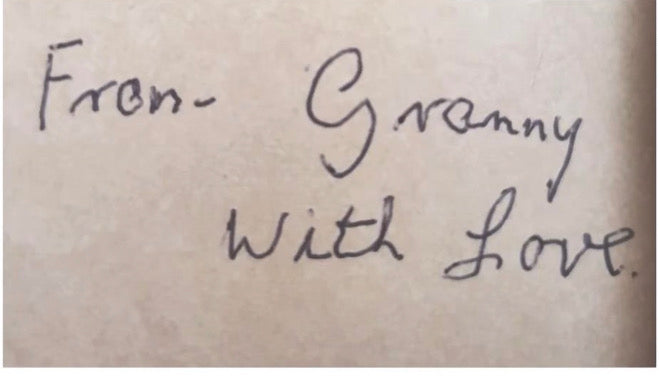 From Granny
With Love.